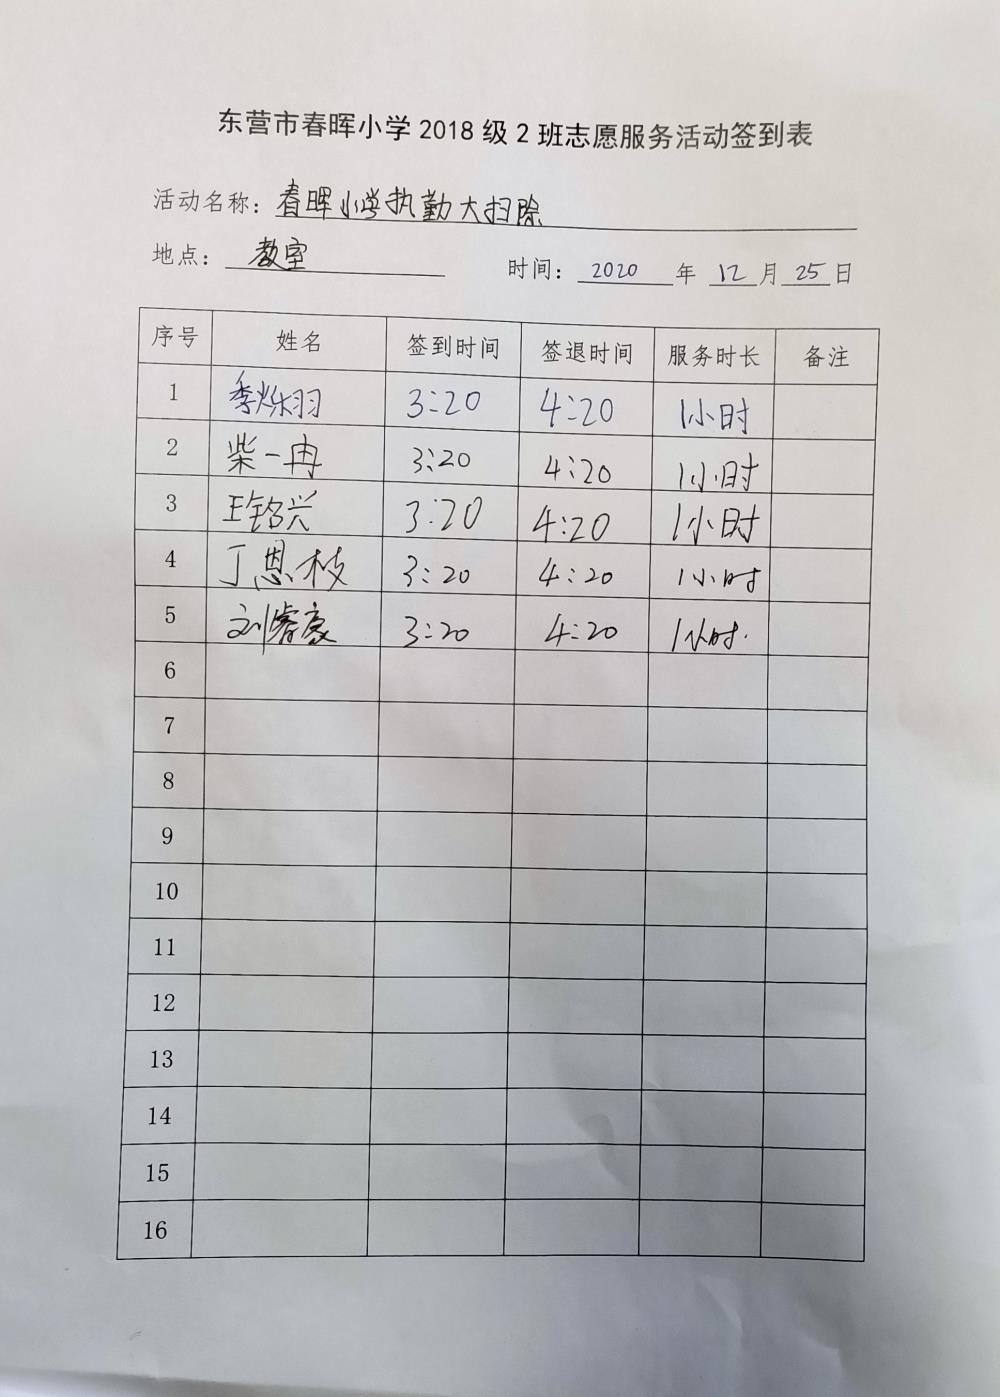 东营市春晖小学 2018 级 2 班志愿服务活动签到表
活动名称：春晖小学执勤大扫除
地点：教室 时间：2020 年 12 月 25 日
序号 姓名 签到时间 签退时间 服务时长 备注
1 季烁羽 3:20 4:20 1小时
2 柴一冉 3:20 4:20 1小时
3 王铭兴 3:20 4:20 1小时
4 丁恩枝 3:20 4:20 1小时
5 刘睿豪 3:20 4:20 1小时.
6
7
8
9
10
11
12
13
14
15
16